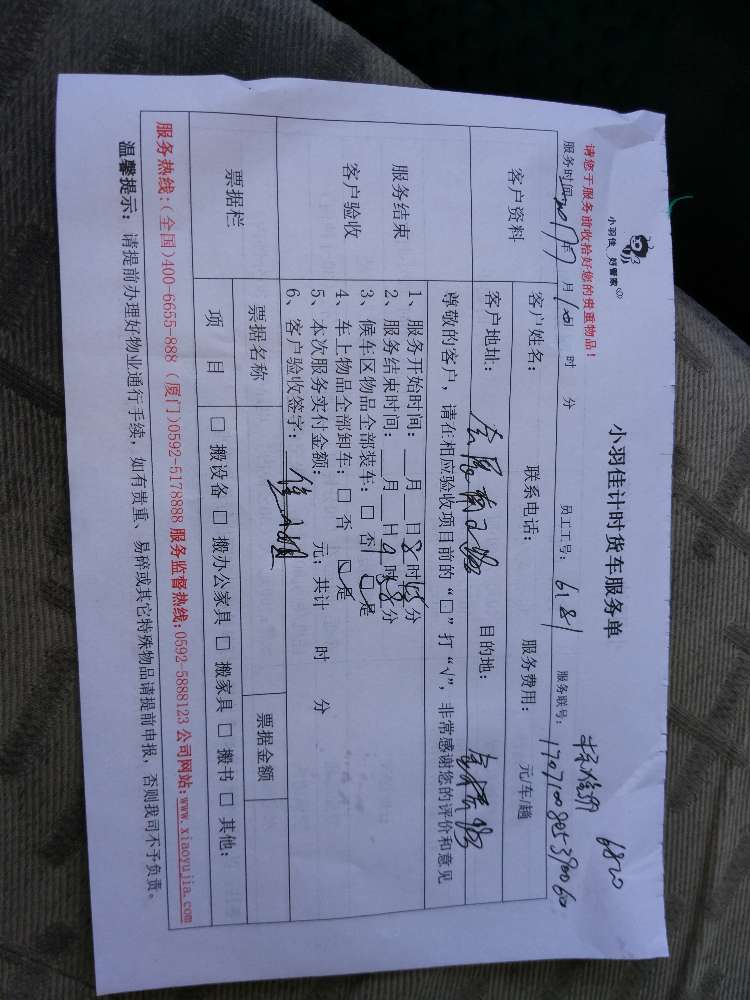 小羽佳 好管家
小羽佳计时货车服务单
请您于服务前收拾好您的贵重物品！
6820
服务时间：2017年 月 10日 时 分 员工工号：6181 服务联号：
客户资料 客户姓名： 联系电话： 服务费用： 元/车/趟
客户地址： 目的地：
服务结束
客户验收
尊敬的客户，请在相应验收项目前的“□”打“√”，非常感谢您的评价和意见
1、服务开始时间：__月__日8时 分
2、服务结束时间：__月__日9时58分
3、候车区物品全部装车：□ 否 □ 是
4、车上物品全部卸车：□ 否 □ 是
5、本次服务实付金额： 元；共计 时 分
6、客户验收签字：
票据栏 票据名称 票据金额
项 目 □ 搬设备 □ 搬办公家具 □ 搬家具 □ 搬书 □ 其他：
服务热线：(全国)400-6655-888 (厦门)0592-5178888 服务监督热线：0592-5888123 公司网站：www.xiaoyujia.com
温馨提示：请提前办理好物业通行手续，如有贵重、易碎或其它特殊物品请提前申报，否则我司不予负责。